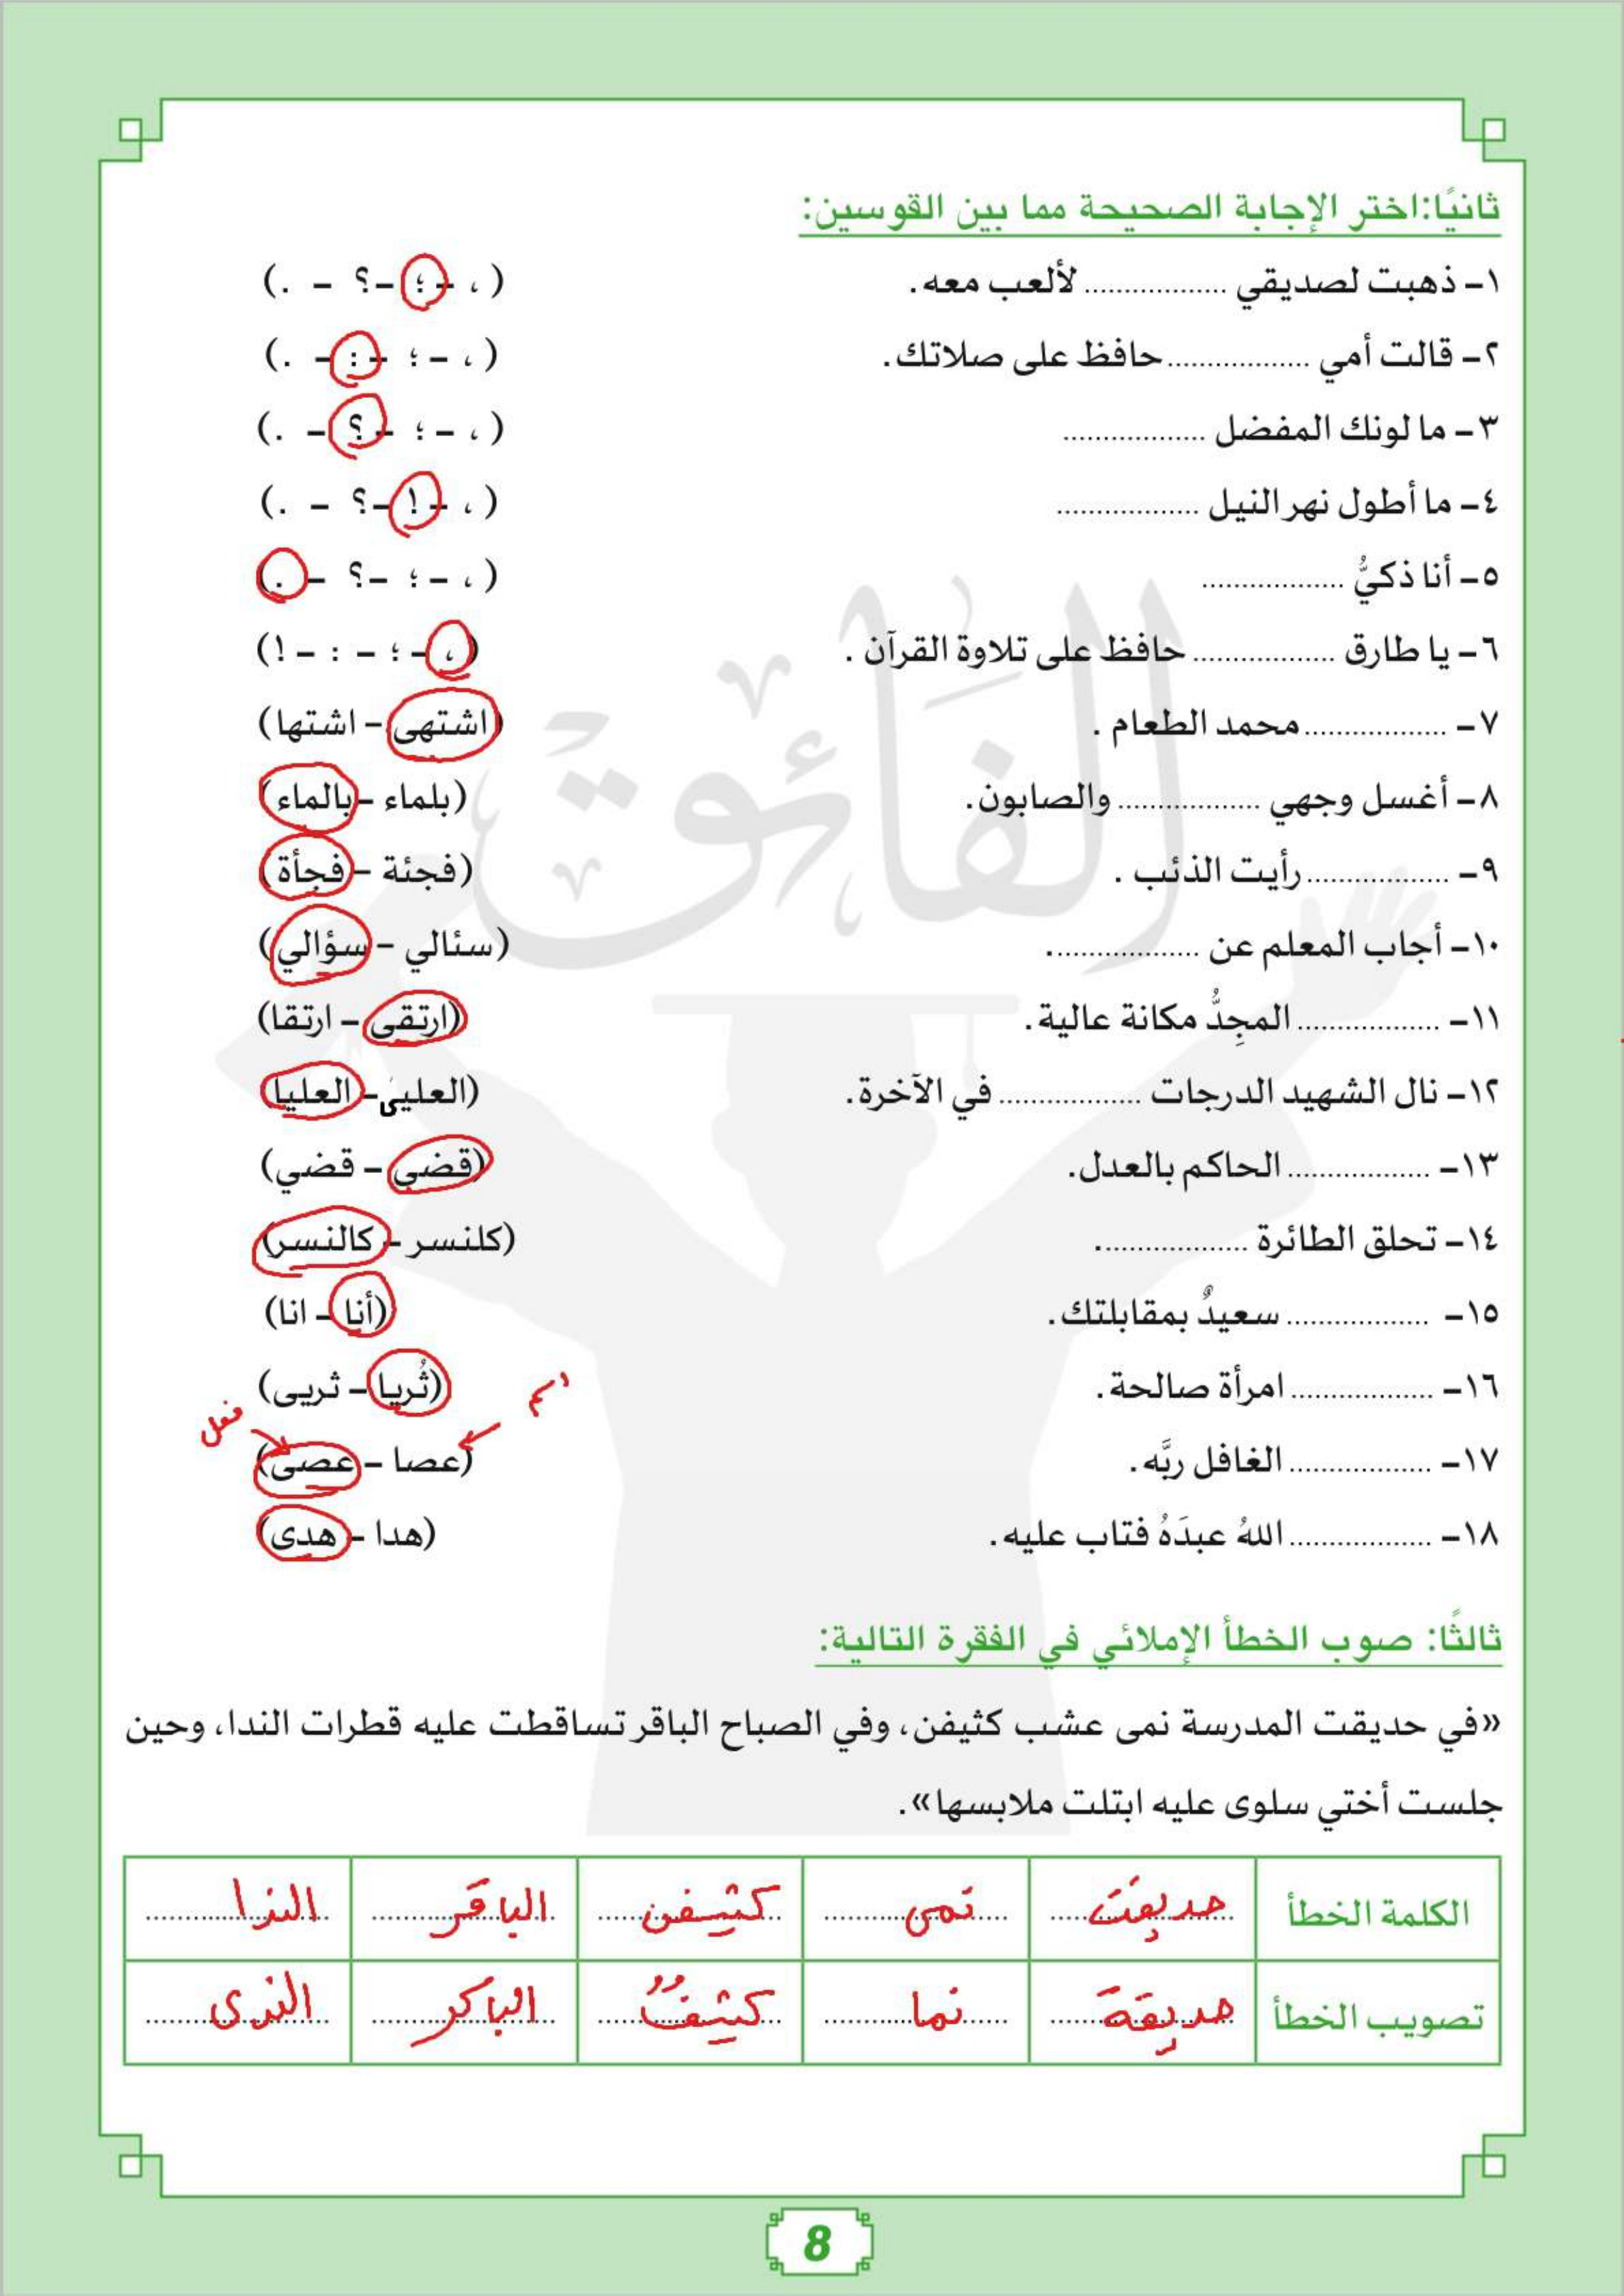 ثانيًا:اختر الإجابة الصحيحة مما بين القوسين:
١- ذهبت لصديقي .................. لألعب معه. ( ، - ؛ -؟ - .)
٢- قالت أمي ..................حافظ على صلاتك. ( ، - ؛ - : - .)
٣- ما لونك المفضل .................. ( ، - ؛ - ؟ - .)
٤- ما أطول نهر النيل .................. ( ، - ! -؟ - .)
٥- أنا ذكيُّ .................. ( ، - ؛ -؟ - .)
٦- يا طارق .................. حافظ على تلاوة القرآن . ( ، - ؛ - : - !)
٧- ..................محمد الطعام . (اشتهى - اشتها)
٨- أغسل وجهي .................. والصابون. (بلماء - بالماء)
٩- ..................رأيت الذئب . (فجئة - فجأة)
١٠- أجاب المعلم عن ................... (سئالي - سؤالي)
١١- .................. المجِدُّ مكانة عالية. (ارتقى - ارتقا)
١٢- نال الشهيد الدرجات .................. في الآخرة. (العليى - العليا)
١٣- .................. الحاكم بالعدل. (قضى - قضي)
١٤- تحلق الطائرة ................... (كلنسر - كالنسر)
١٥- .................. سعيدٌ بمقابلتك. (أنا - انا)
١٦- .................. امرأة صالحة. (ثُريا - ثريى)
اسم
فعل
١٧- .................. الغافل ربَّه. (عصا - عصى)
١٨- .................. اللهُ عبدَهُ فتاب عليه. (هدا - هدى)
ثالثًا: صوب الخطأ الإملائي في الفقرة التالية:
«في حديقت المدرسة نمى عشب كثيفن، وفي الصباح الباقر تساقطت عليه قطرات الندا، وحين
جلست أختي سلوى عليه ابتلت ملابسها».
الكلمة الخطأ حديقت نمى كثيفن الباقر الندا
تصويب الخطأ حديقة نما كثيفٌ الباكر الندى
8
الفائق